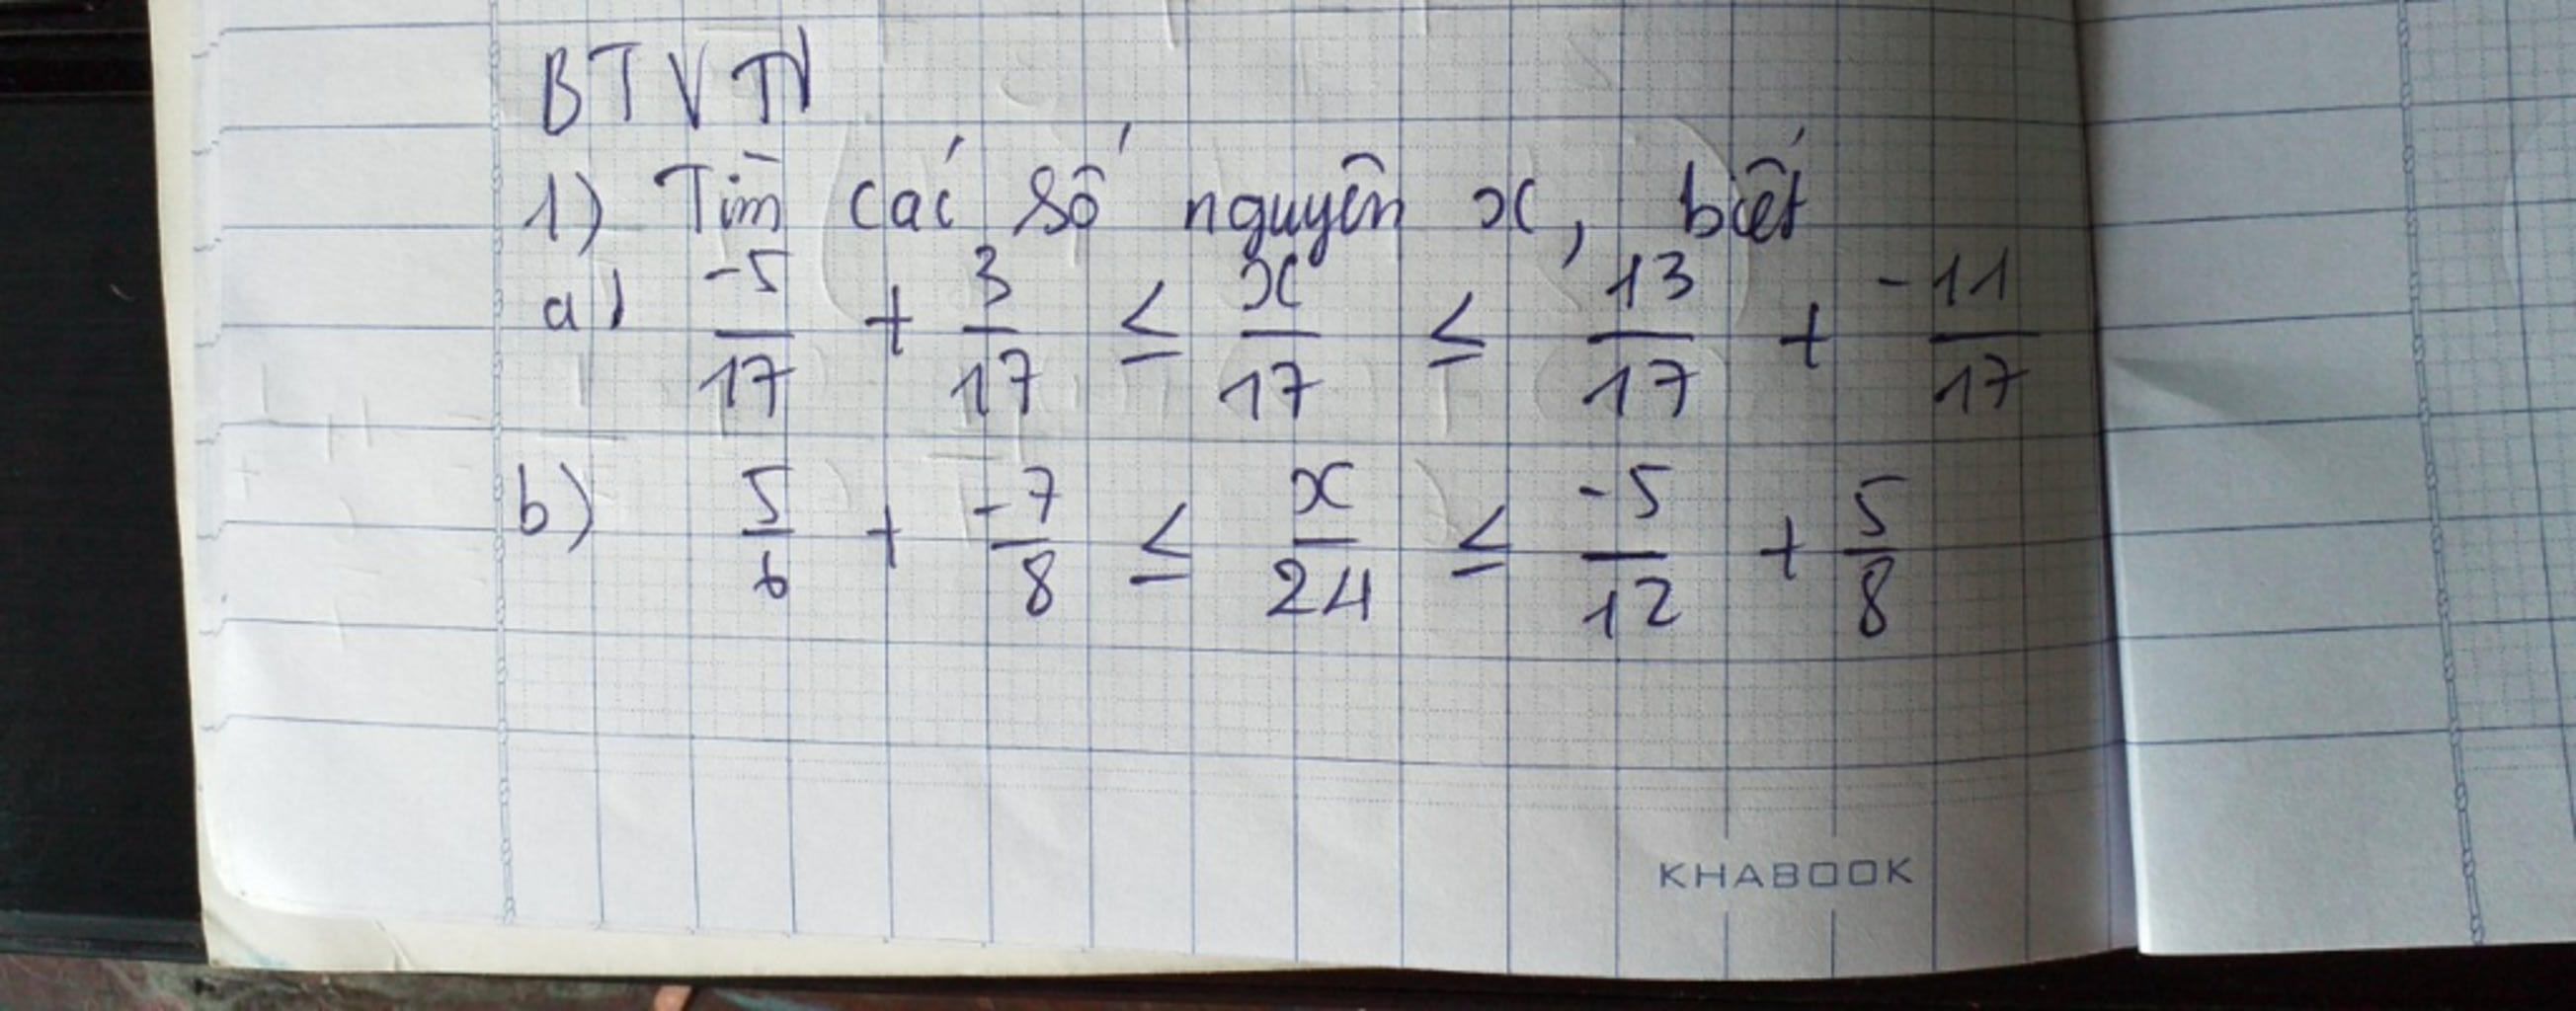 BTVN
1) Tìm các số nguyên x, biết
a) \frac{-5}{17} + \frac{3}{17} ≤ \frac{x}{17} ≤ \frac{13}{17} + \frac{-11}{17}
b) \frac{5}{6} + \frac{-7}{8} ≤ \frac{x}{24} ≤ \frac{-5}{12} + \frac{5}{8}
KHABOOK